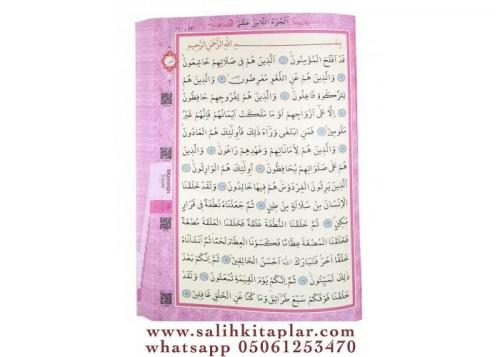 اَلْجُزْءُ الثَّامِنُ عَشَرَ
بِسْمِ اللّٰهِ الرَّحْمٰنِ الرَّحٖيمِ
قَدْ اَفْلَحَ الْمُؤْمِنُونَ ﴿١﴾ اَلَّذٖينَ هُمْ فٖي صَلَاتِهِمْ خَاشِعُونَ
﴿٢﴾ وَالَّذٖينَ هُمْ عَنِ اللَّغْوِ مُعْرِضُونَ ﴿٣﴾ وَالَّذٖينَ هُمْ
لِلزَّكٰوةِ فَاعِلُونَ ﴿٤﴾ وَالَّذٖينَ هُمْ لِفُرُوجِهِمْ حَافِظُونَ
﴿٥﴾ اِلَّا عَلٰٓى اَزْوَاجِهِمْ اَوْ مَا مَلَكَتْ اَيْمَانُهُمْ فَاِنَّهُمْ غَيْرُ
مَلُومٖينَ ﴿٦﴾ فَمَنِ ابْتَغٰى وَرَٓاءَ ذٰلِكَ فَاُولٰٓئِكَ هُمُ الْعَادُونَ
﴿٧﴾ وَالَّذٖينَ هُمْ لِاَمَانَاتِهِمْ وَعَهْدِهِمْ رَاعُونَ ﴿٨﴾ وَالَّذٖينَ
هُمْ عَلٰى صَلَوَاتِهِمْ يُحَافِظُونَ ﴿٩﴾ اُولٰٓئِكَ هُمُ الْوَارِثُونَ ﴿١٠﴾
اَلَّذٖينَ يَرِثُونَ الْفِرْدَوْسَ هُمْ فٖيهَا خَالِدُونَ ﴿١١﴾ وَلَقَدْ خَلَقْنَا
الْاِنْسَانَ مِنْ سُلَالَةٍ مِنْ طٖينٍ ﴿١٢﴾ ثُمَّ جَعَلْنَاهُ نُطْفَةً فٖي قَرَارٍ
مَكٖينٍ ﴿١٣﴾ ثُمَّ خَلَقْنَا النُّطْفَةَ عَلَقَةً فَخَلَقْنَا الْعَلَقَةَ مُضْغَةً
فَخَلَقْنَا الْمُضْغَةَ عِظَامًا فَكَسَوْنَا الْعِظَامَ لَحْمًا ثُمَّ اَنْشَاْنَاهُ
خَلْقًا اٰخَرَ فَتَبَارَكَ اللّٰهُ اَحْسَنُ الْخَالِقٖينَ ﴿١٤﴾ ثُمَّ اِنَّكُمْ بَعْدَ
ذٰلِكَ لَمَيِّتُونَ ﴿١٥﴾ ثُمَّ اِنَّكُمْ يَوْمَ الْقِيٰمَةِ تُبْعَثُونَ ﴿١٦﴾ وَلَقَدْ
خَلَقْنَا فَوْقَكُمْ سَبْعَ طَرَٓائِقَ وَمَا كُنَّا عَنِ الْخَلْقِ غَافِلٖينَ ﴿١٧﴾
Müminun
www.salihkitaplar.com
whatsapp 05061253470